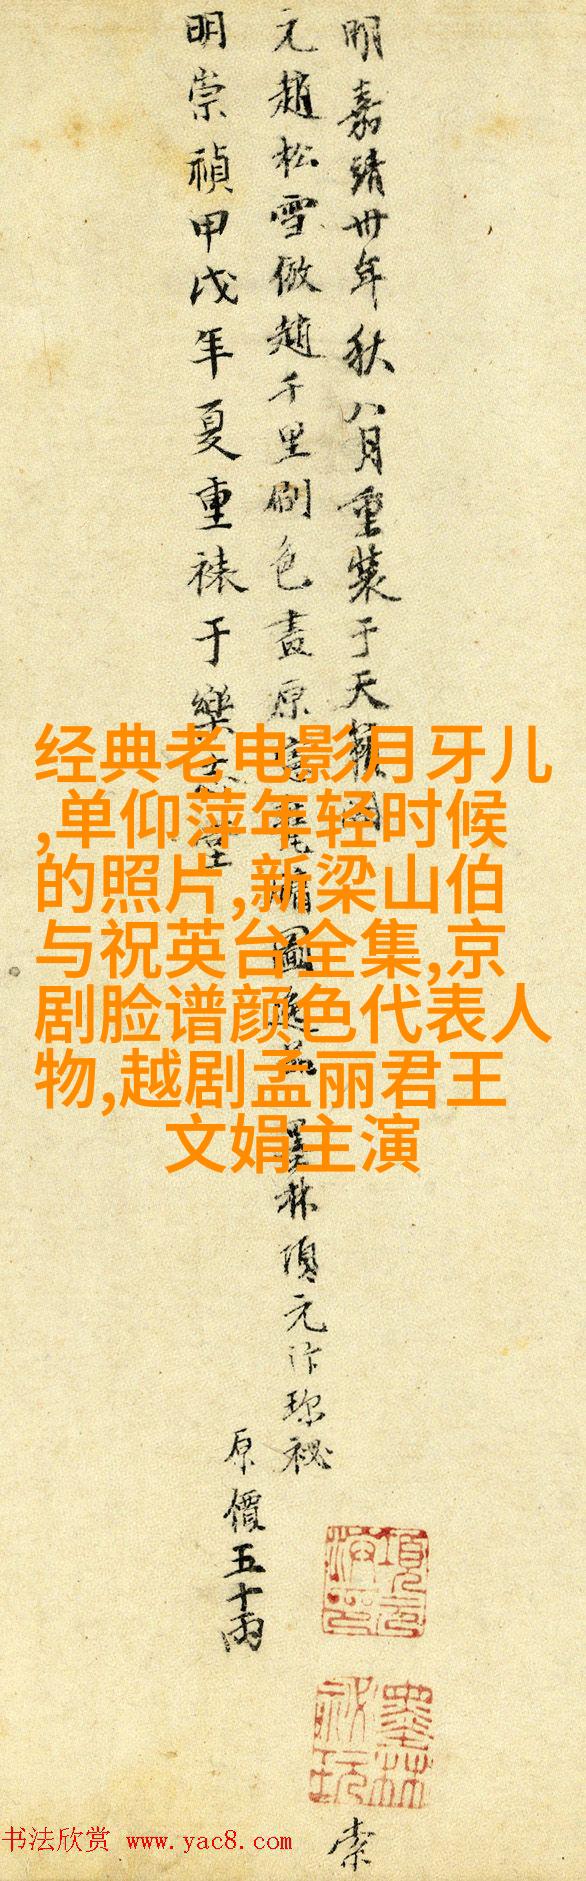 明嘉靖卅年秋八月重装于天籁阁
元趙松雪倣趙千里刷色畫原
林項元汴珍祕
原價五十兩
明崇禎甲戌年夏重裱于樂志堂
经典老电影月牙儿
,单仰萍年轻时候
的照片,新梁山伯
与祝英台全集,京
剧脸谱颜色代表人
物,越剧孟丽君王
文娟主演
項元汴印
墨林祕玩
书法欣赏 www.yac8.com